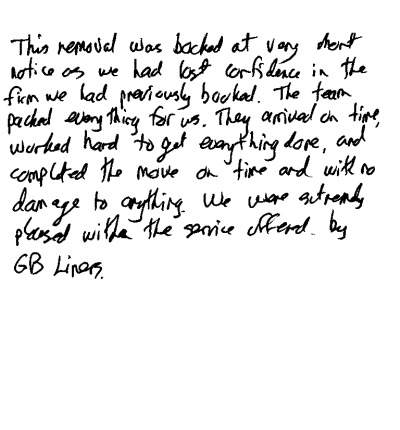 This removal was booked at very short
notice as we had lost confidence in the
firm we had previously booked. The team
packed everything for us. They arrived on time,
worked hard to get everything done, and
completed the move on time and with no
damage to anything. We were extremely
pleased with the service offered. by
GB Liners.